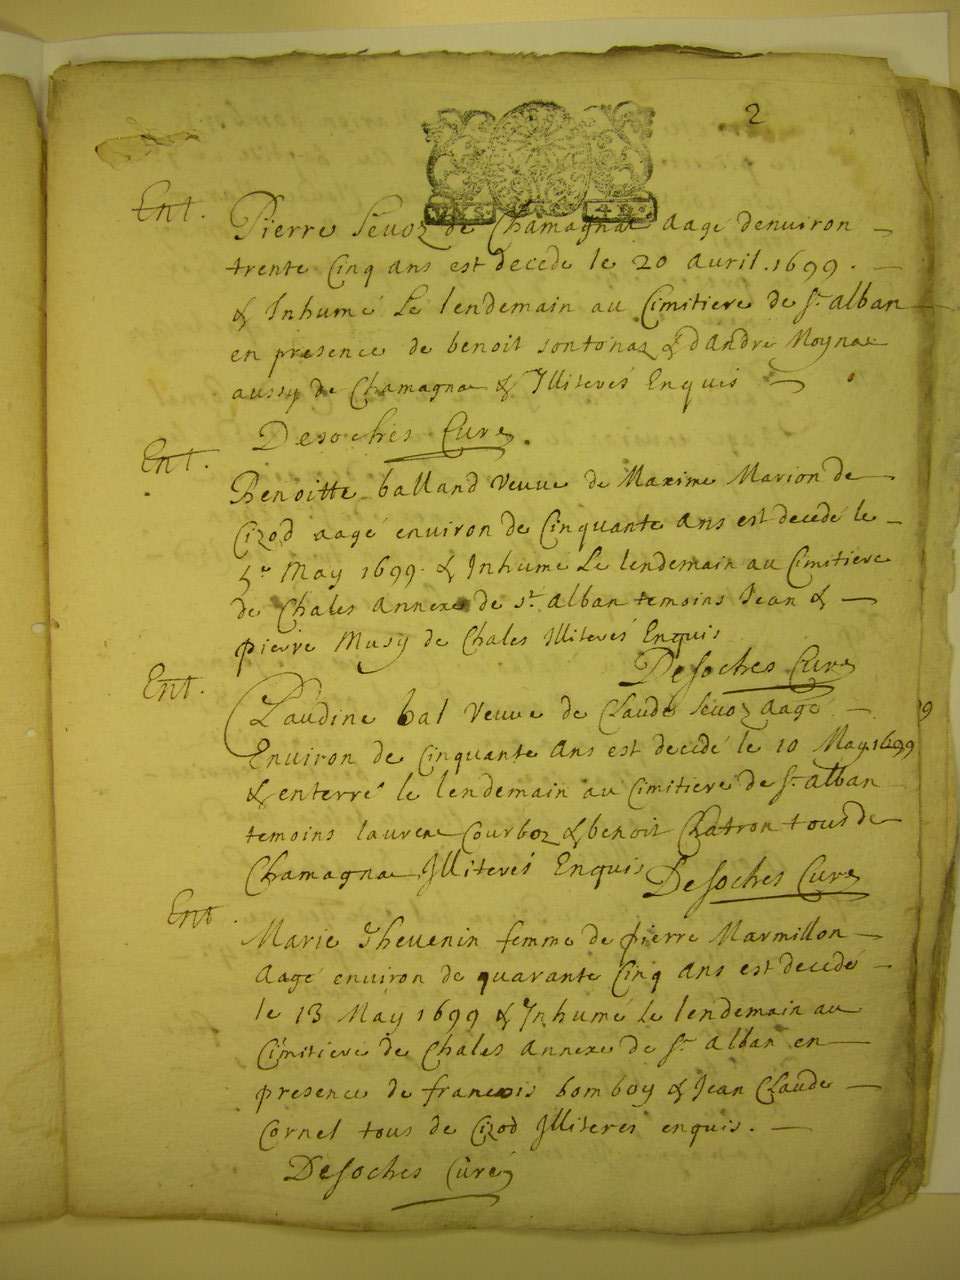 2
Ent.
Pierre Sévoz de Chamagnae aagé denuiron
trente Cinq ans est decede le 20 auril 1699.
& Inhumé Le lendemain au Cimitiere de St alban
en presence de benoit sontonaz & dAndre Moynae
aussy de Chamagnae & Illiterés Enquis
Desoches Curé.
Ent.
Benoitte balland veuue de Maxime Marion de
Cizod aagé enuiron de Cinquante ans est decedé le
May 1699. & Inhumé Le lendemain au Cimitiere
de Chales Annexe de St. alban temoins Jean &
pierre Musy de Chales Illiterés Enquis
Desoches Curé
Ent.
Claudine bal Veuue de Claude Sévoz aagé
Enuiron de Cinquante Ans est decedé le 10 May 1699
& enterré le lendemain au Cimitiere de St. alban
temoins laurent Courboz & benoit Chatron tous de
Chamagnae Illiterés Enquis Desoches Curé
Ent.
Marie Theuenin femme de pierre Marmillon
Aagé enuiron de quarante Cinq Ans est decedé
le 13 May 1699 & Inhumé Le lendemain au
Cimitiere de Chales Annexe de St alban en
presence de francois bomboy & Jean Claude
Cornel tous de Cizod Illiteres enquis.
Desoches Curé